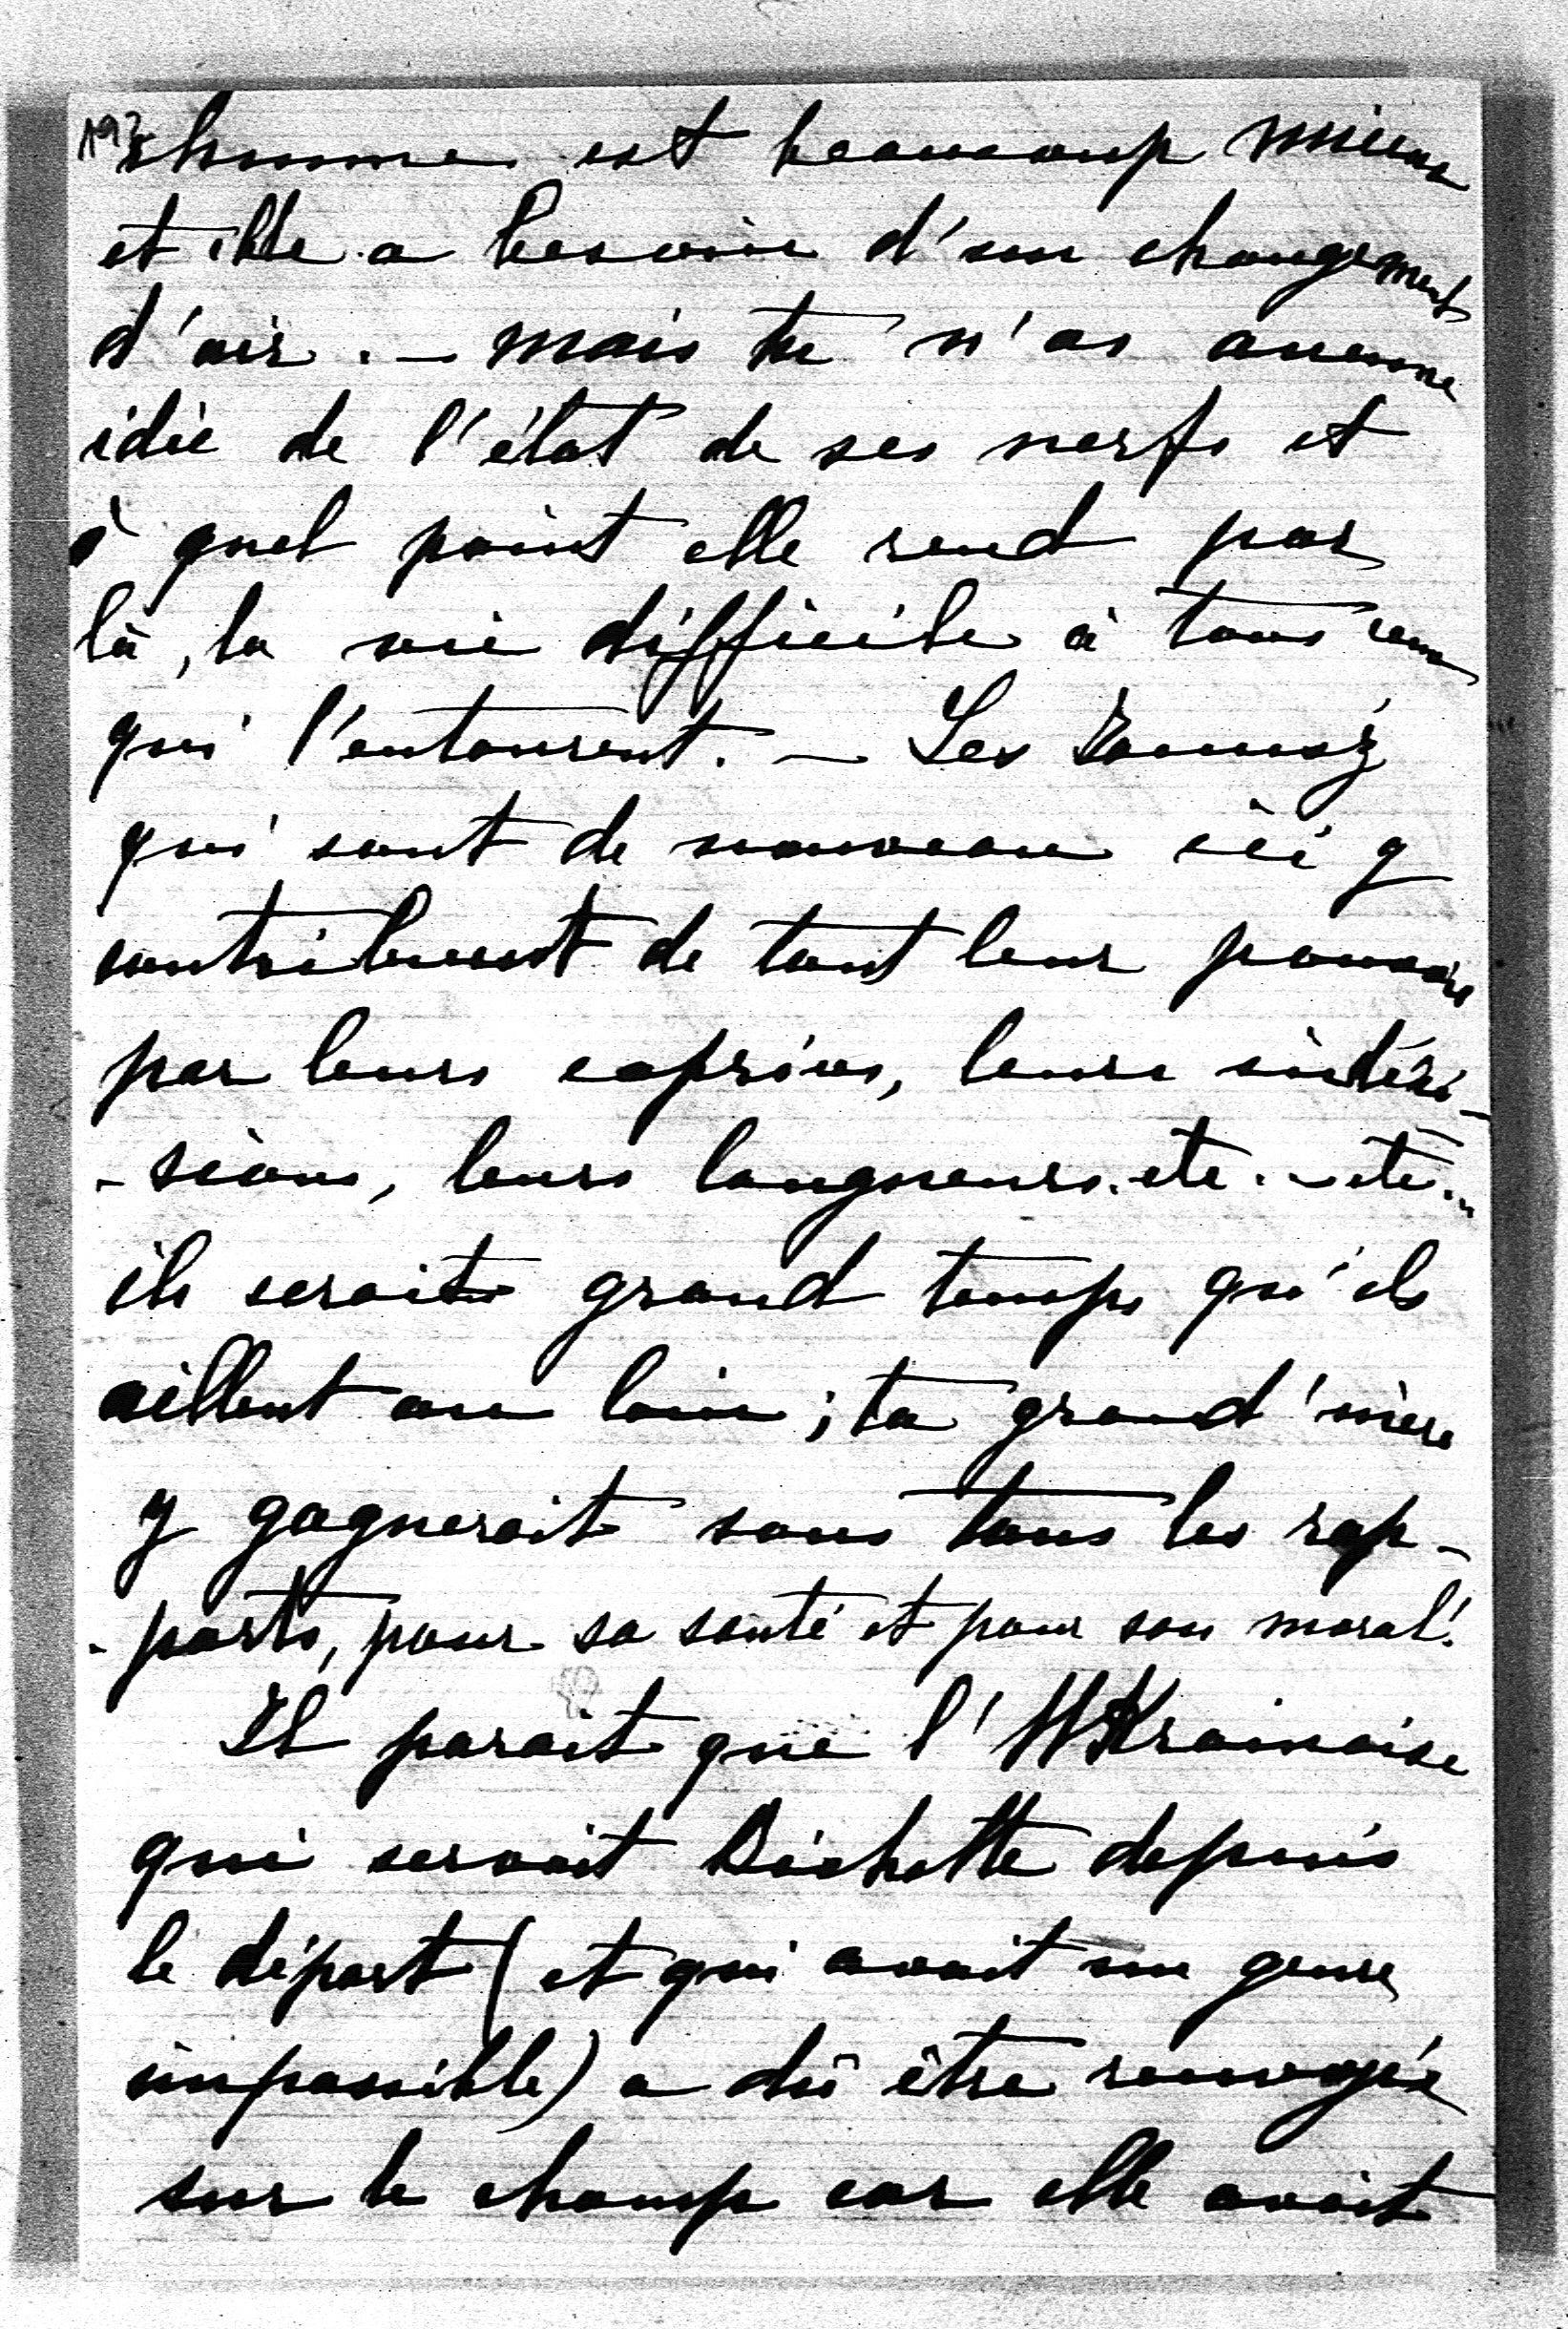 rhume est beaucoup mieux
et elle a besoin d'un changement
d'air. — Mais tu n'as aucune
idée de l'état de ses nerfs et
à quel point elle rend par
là, la vie difficile à tous ceux
qui l'entourent. — Les
qui sont de nouveau ici y
contribuent de tout leur pouvoir
par leurs caprices, leurs indéci-
-sions, leurs langueurs. etc. — etc..
ils serait grand temps qu'ils
aillent au loin ; ta grand'mère
y gagnerait sous tous les rap-
-ports, pour sa santé et pour son moral!
Il parait que l'Ukrainaise
qui servait Bichette depuis
le départ (et qui avait un genre
impossible) a dû être renvoyée
sur le champ car elle avait